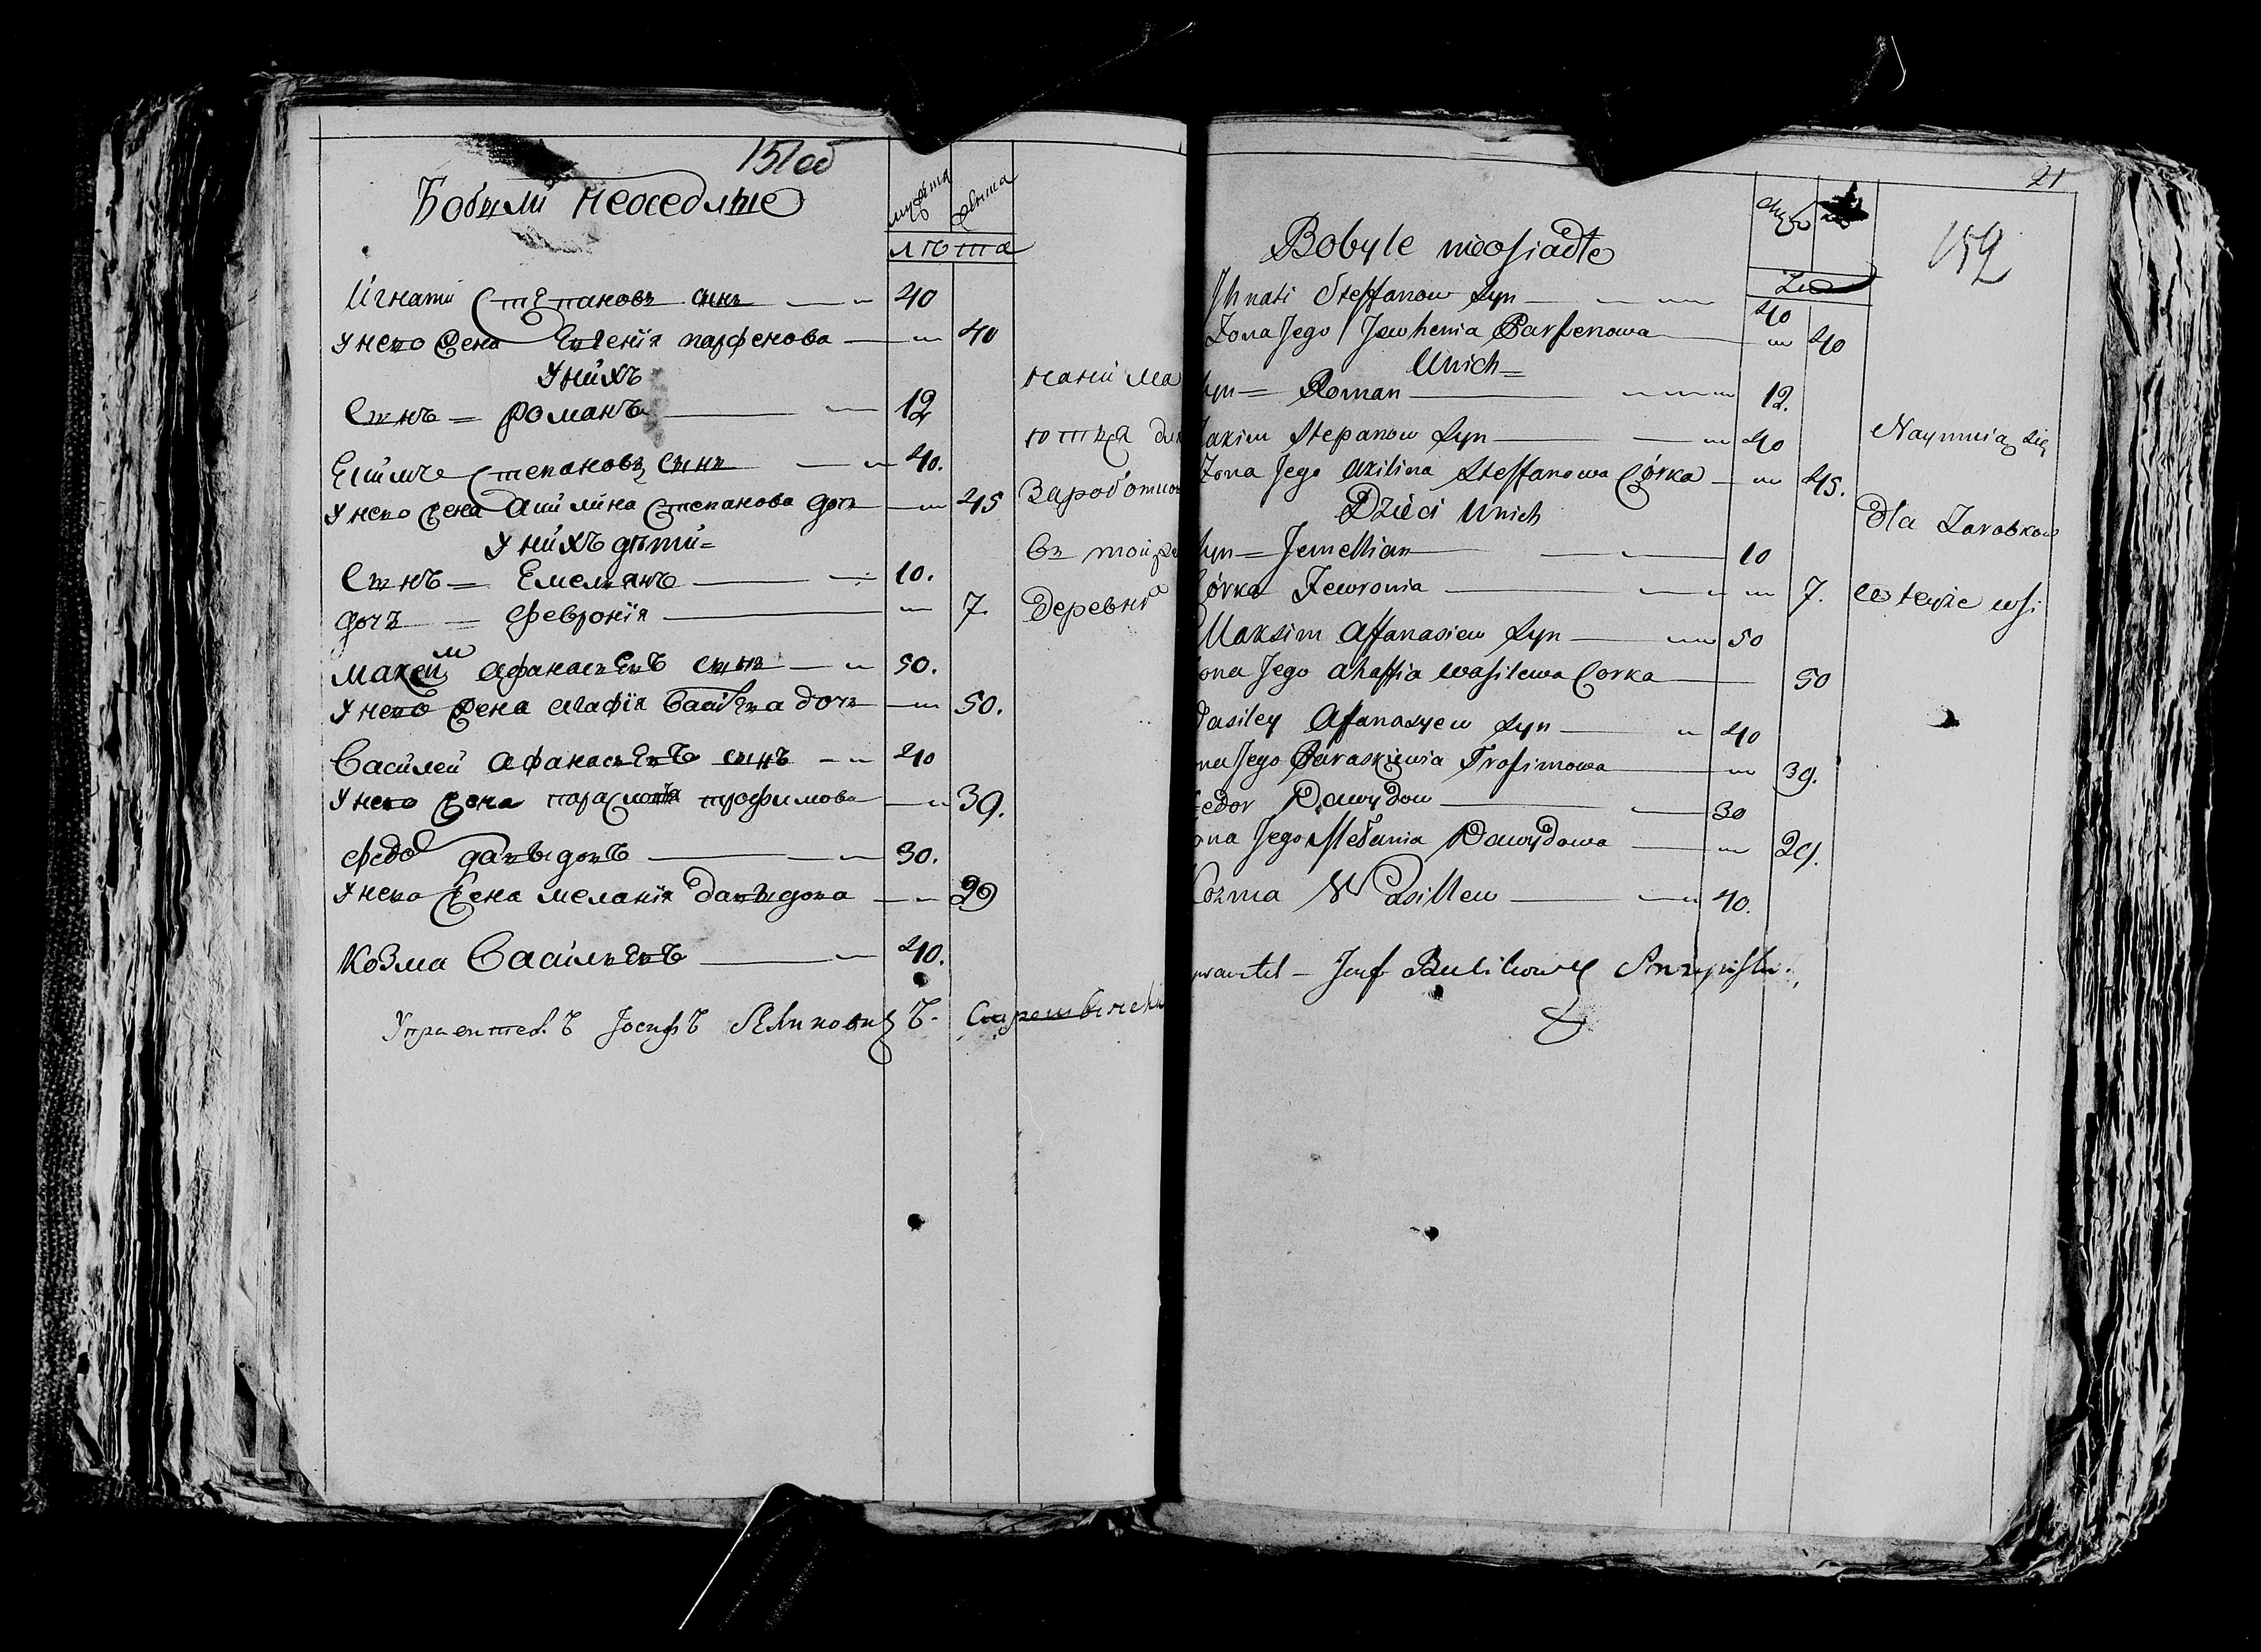 151об
Бобыли неоседлые
мужеска
женска
лѣта
Игнатй Степановъ сынъ 40
У нево жена Евгенiя парфенова 40
У нихъ
Сынъ = романъ 12
Степановъ сынъ 40.
У нево жена Акилина Степанова дочь 45
У нихъ дѣти =
Сынъ = Емельянъ 10.
дочь = Февронiя 7.
Максим афанасьевъ сынъ 50.
У нево жена агафiя Васильева дочь 50.
Василей афанасьевъ сынъ 40
У нево жена парасковiя трофимова 39.
Федор давыдовъ 30.
У нево жена меланiя давыдова 29
Козма Васильевъ 40.
нанима
ются для
заработков
въ той же
деревни
Управител.ъ Iосифъ
21
152
Bobyle nieosiadłe
Męzo
Lia
Jhnati Steffanow Syn 40
Zona Jego Jewhenia Parfenowa 40
Unich =
Syn = Roman 12.
akim Stepanow Syn 40
Zona Jego Axilina Steffanowa Córka 45.
Dzieci Unich
Syn = Jemellian 10
Córka Fewronia 7.
Maksim Affanasiew Syn 50
ona Jego Ahaffia Wasilewa Corka 50
Wasiley Afanasyew Syn 40
ona Jego Paraskiewia Trofimowa 39.
Fedor Dawydow 30
ona Jego Mełania Dawydowa 29.
Kozma Wasillew 40.
Naymuią się
dla Zarobkow
w teyże wsi